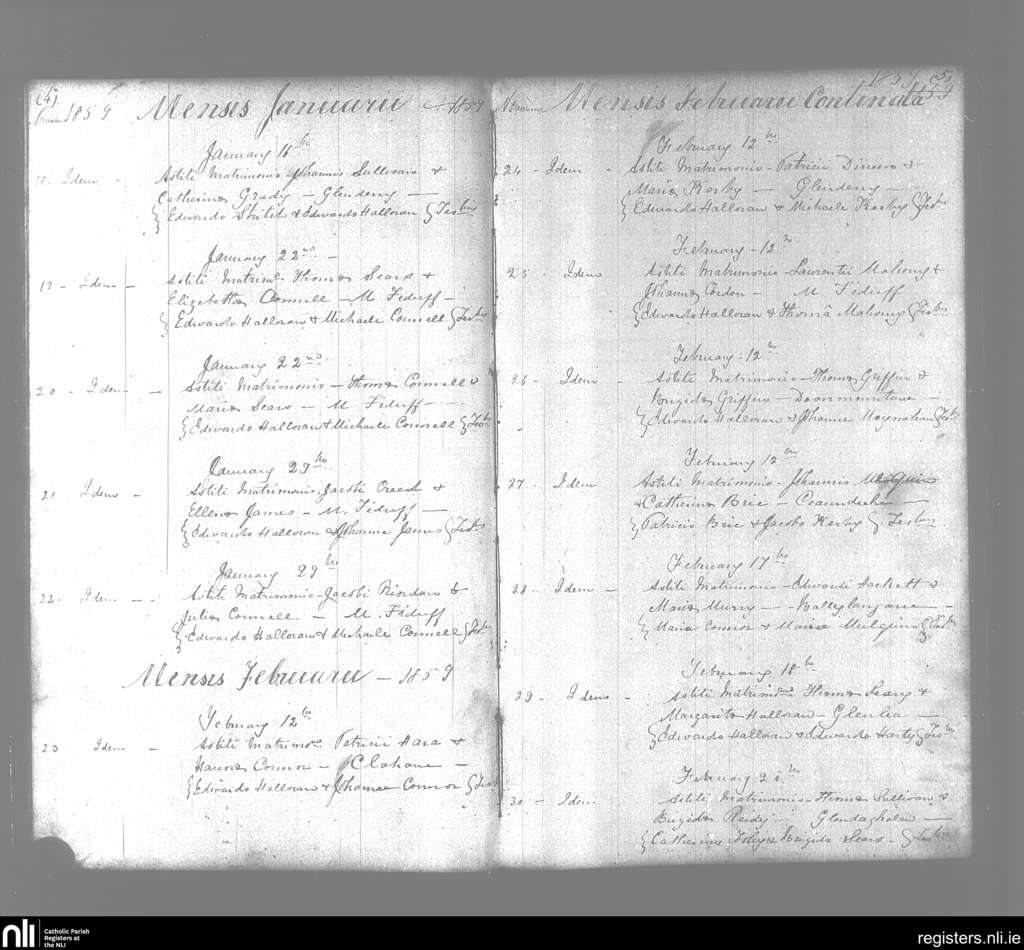 (4)
1859 Mensis Januarii 1859
January 16th
Idem - Astiti Matrimonio Johannis Sullivan &
Catherina Grady - Glendeny -
Edwardo & Edwardo Halloran Testibus
January 22nd -
19 - Idem - Astiti Matrimo. Thomæ Sears &
Elizabetha Connell - M Fiduff -
Edwardo Halloran & Michaele Connell Testibus
January 22nd
20 - Idem - Astiti Matrimonio - Thomæ Connell &
Maria Sears - M Fiduff -
Edwardo Halloran & Michaele Connell Testibus
January 29th
21 - Idem - Astiti Matrimonio Jacobi Creed &
Ellena James - M. Fiduff -
Edwardo Halloran & Johanne James Testibus
January 29th
22 - Idem - Astiti Matrimonio - Jacobi Riordan &
Julia Connell - M. Fiduff
Edwardo Halloran & Michaele Connell Testibus
Mensis Februarii - 1859
February 12th
23 Idem - Astiti Matrimo. Patricii Hara &
Hanora Connor - Clahane -
Edwardo Halloran & Johanne Connor
(5)
Mensis Februarii Continuata 1859
February 12th
24 - Idem - Astiti Matrimonio - Patricii &
Maria Kerby - Glendeny -
Edwardo Halloran & Michaele Kerby Testibus
February - 12th
25 - Idem - Astiti Matrimonio - Laurentii Mahony &
Johanna - M Fiduff
Edwardo Halloran & Thomâ Mahony Testibus
February - 12th
26 - Idem - Astiti Matrimonio - Thomæ Griffin &
Brigida Griffin - -
Edwardo Halloran & Johanne Moynahan Testibus
February 12th
27 - Idem - Astiti Matrimonio - Johannis
& Catherina Brie -
Patricio Brie & Jacobo Kerby Testibus
February 17th
28 - Idem - Astiti Matrimonio - Edwardi Hackett &
Maria Murry - -
Maria Connor & Maria Testibus
February 18th
29 - Idem - Astiti Matrimo. Thomæ Leary &
Margarita Halloran - Glenlea -
Edwardo Halloran & Edwardo Harty Testibus
February
30 - Idem Astiti Matrimonio - Thomæ Sullivan &
Brigida Reidy - -
Catherina Foley & Brigida Sears - Testibus
nli Catholic Parish
Registers at
the NLI
registers.nli.ie